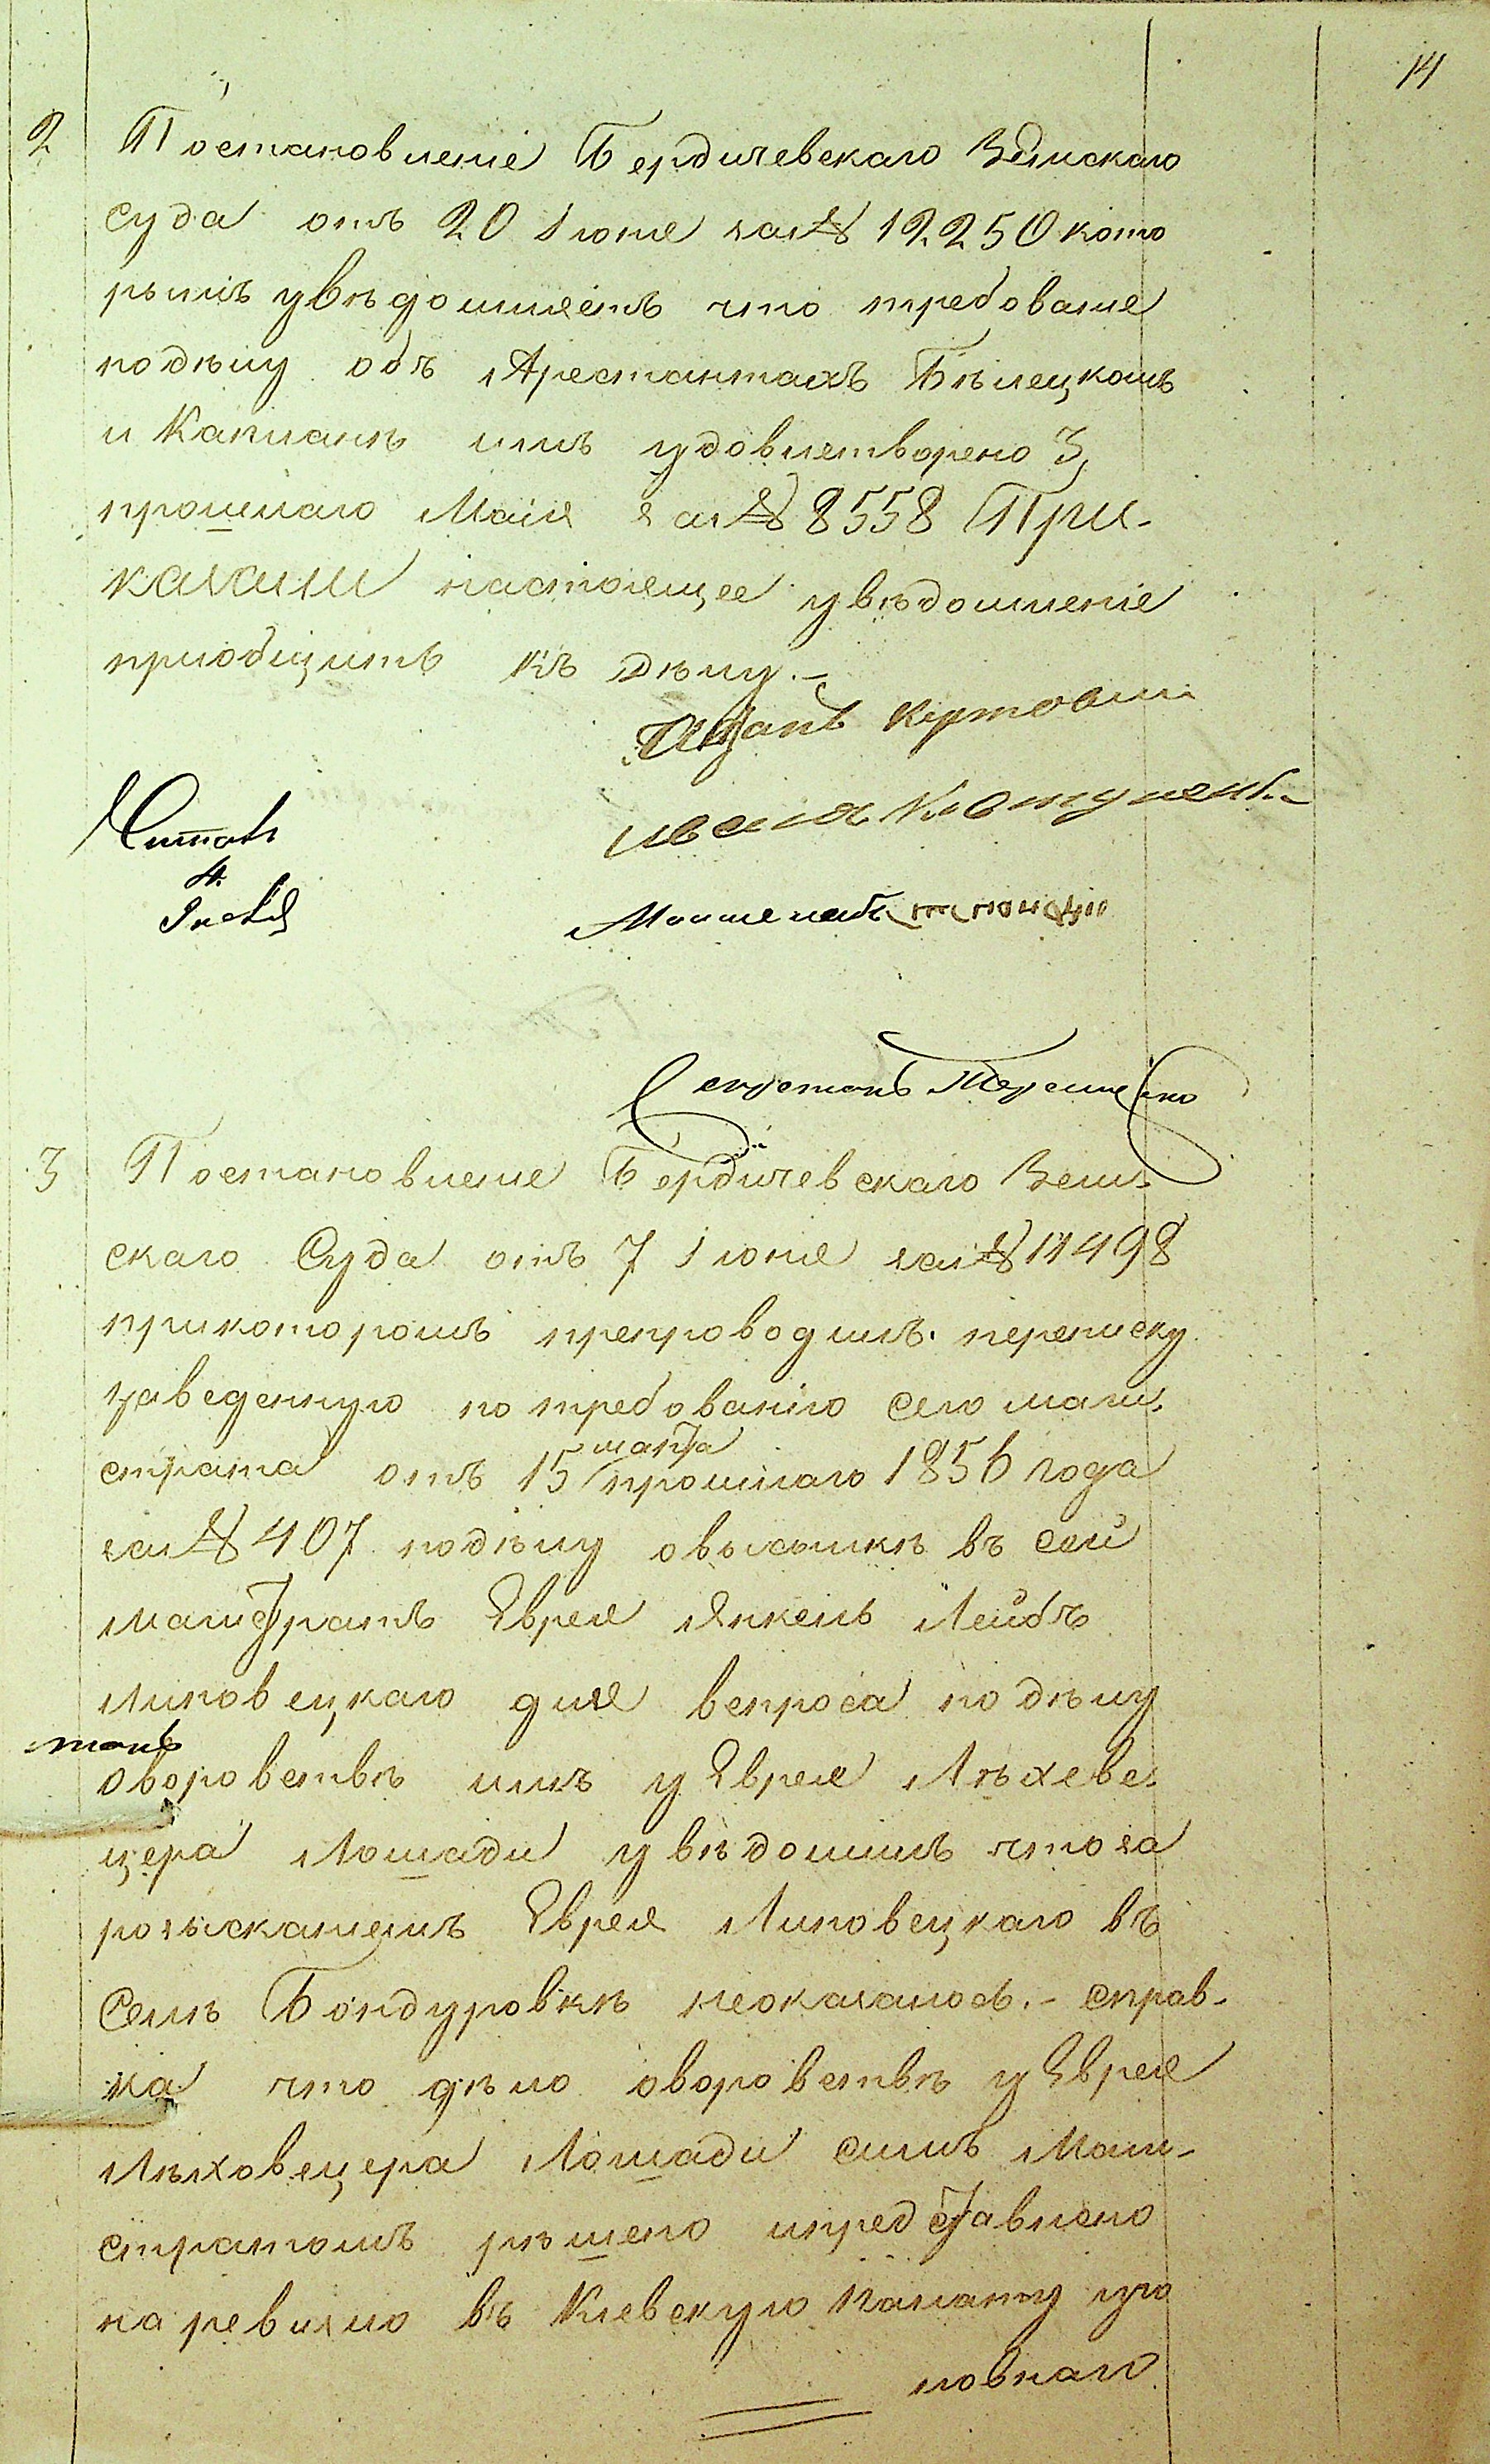 14
2 Постановленіе Бердичевскаго Земскаго
суда отъ 20 Іюня за № 12250 кото
рымъ увѣдомляетъ что требованіе
подѣлу объ Арестантахъ Бѣлецкомъ
и Капланѣ имъ удовлетворено 3
прошлаго Маія за № 8558 При-
казали настоящее увѣдомленіе
пріобщить къ дѣлу.-
Читалъ
Секретарь Терещенко
3 Постановленіе Бердичевскаго Зем-
скаго Суда отъ 7 Іюня за № 11498
прикоторомъ препроводилъ переписку
заведенную по требованію сего маги-
страта отъ 15 марта прошлаго 1856 года
за № 407 подѣлу овысылкѣ въ сей
магистратъ Еврея Янкель Лейбъ
Липовецкаго для вспроса по дѣлу
оворовствѣ имъ у Еврея Ляхове-
цера Лошади увѣдомилъ что за
розысканіемъ Еврея Липовецкаго въ
Селѣ Бондуровкѣ неоказалось.- справ-
ка что дѣло оворовствѣ у Еврея
Ляховецера Лошади симъ Маги-
стратомъ рѣшено ипредставлено
на ревизію въ Кіевскую Палату уго
ловнаго